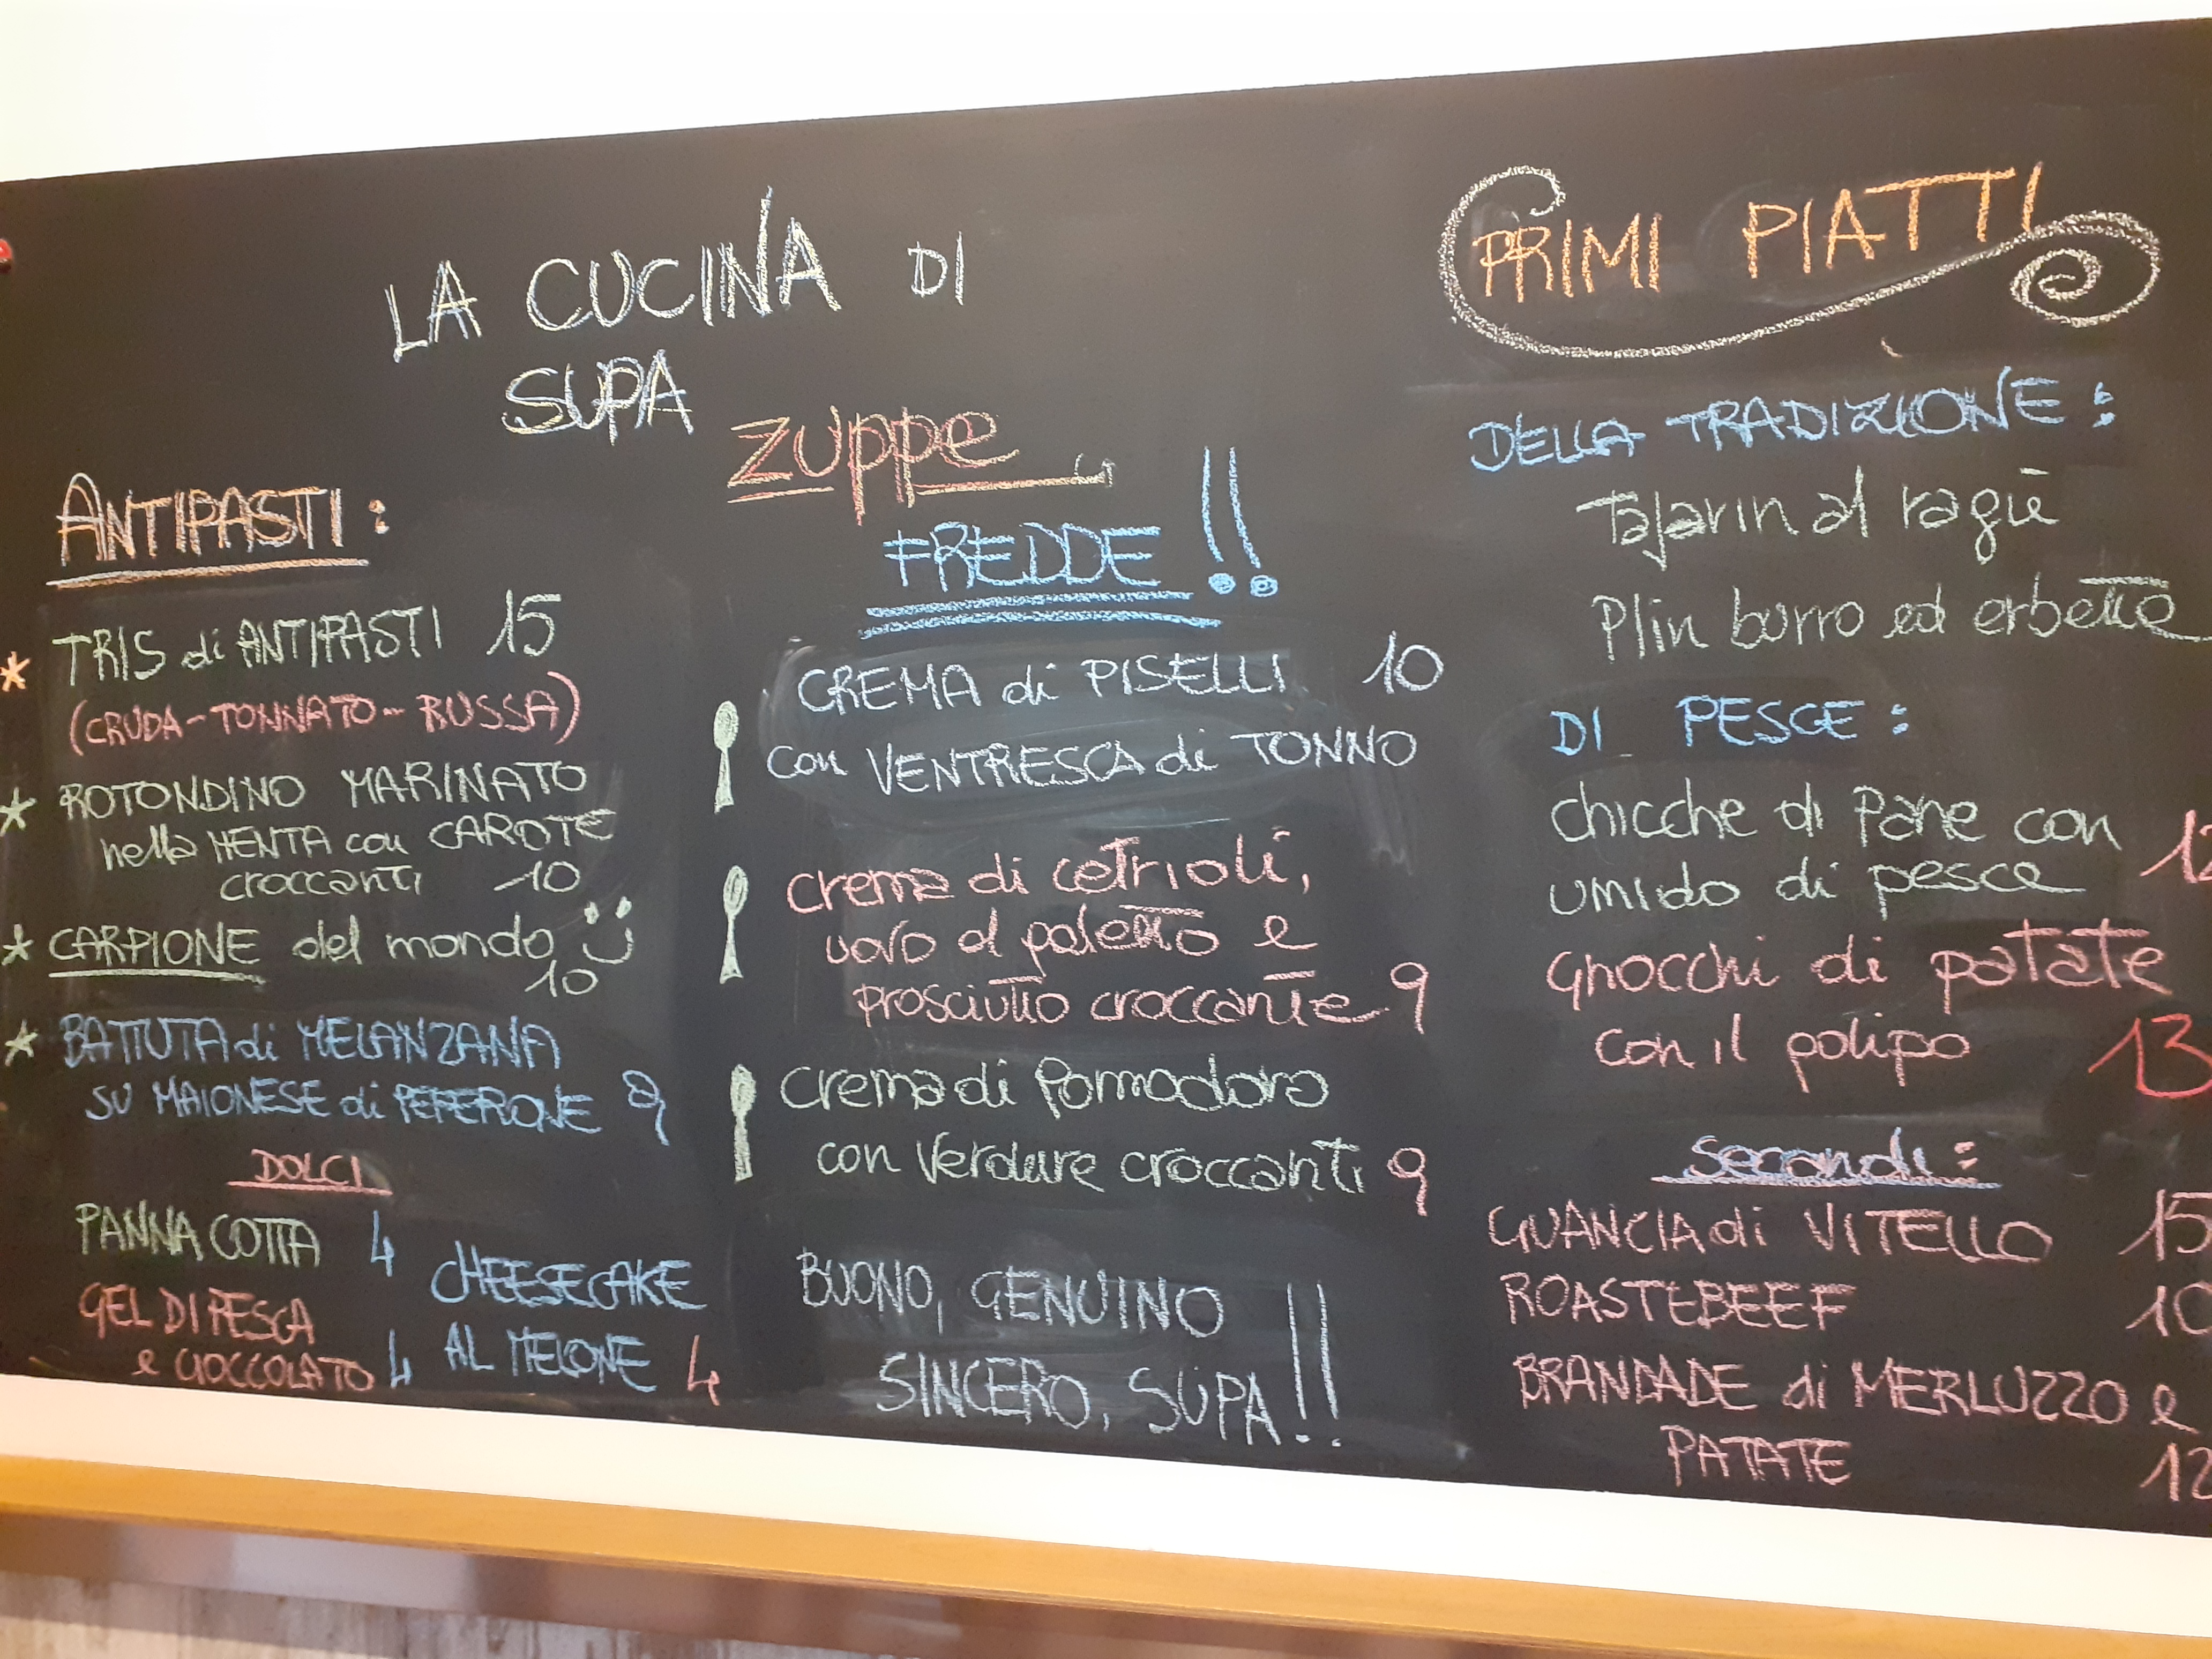 LA CUCINA DI
SUPA
ANTIPASTI:
TRIS di ANTIPASTI 15
(CRUDA-TONNATO-RUSSA)
ROTONDINO MARINATO
nella MENTA con CAROTE
croccanti 10
CARPIONE del mondo
10
BATTUTA di MELANZANA
SU MAIONESE di PEPERONE 9
DOLCI
PANNA COTTA 4
GEL DI PESCA
e CIOCCOLATO 4
CHEESECAKE
AL MELONE 4
Zuppe
FREDDE!!
CREMA di PISELLI 10
con VENTRESCA di TONNO
crema di cetrioli,
uovo al paletto e
prosciutto croccante 9
Crema di Pomodoro
con Verdure croccanti 9
BUONO, GENUINO
SINCERO, SUPA!!
PRIMI PIATTI
DELLA TRADIZIONE:
Tajarin al ragù
Plin burro ed erbette
DI PESCE:
chicche di Pane con
umido di pesce 12
gnocchi di patate
con il polipo 13
Secondi:
GUANCIA di VITELLO 15
ROASTEBEEF 10
BRANDADE di MERLUZZO e
PATATE 12